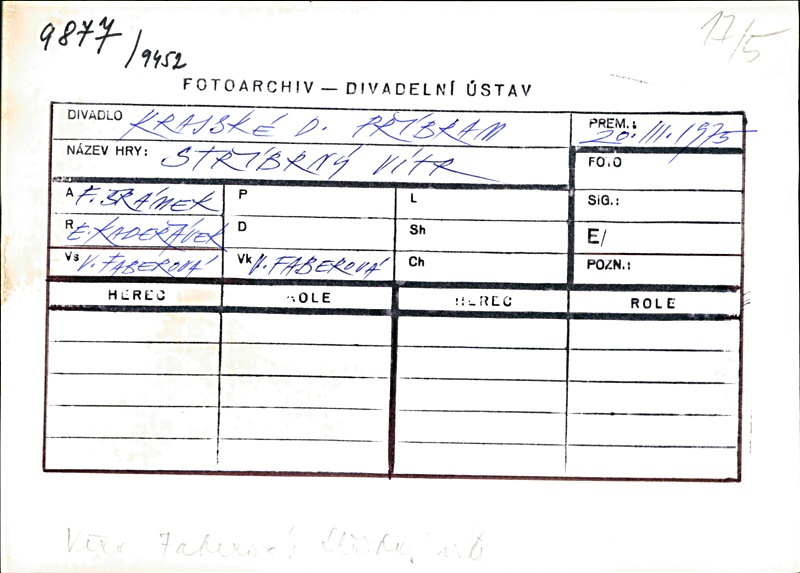 9877/9452
17/5
FOTOARCHIV — DIVADELNÍ ÚSTAV
DIVADLO KRAJSKÉ D. PŘÍBRAM
PREM.: 20. III. 1975
NÁZEV HRY: STŘÍBRNÝ VÍTR
FOTO
A F. ŠRÁMEK P L
SIG.:
R E. KADEŘÁVEK D Sh
E/
Vs V. FABEROVÁ Vk V. FABEROVÁ Ch
POZN.:
HEREC ROLE HEREC ROLE
Věra Faberová